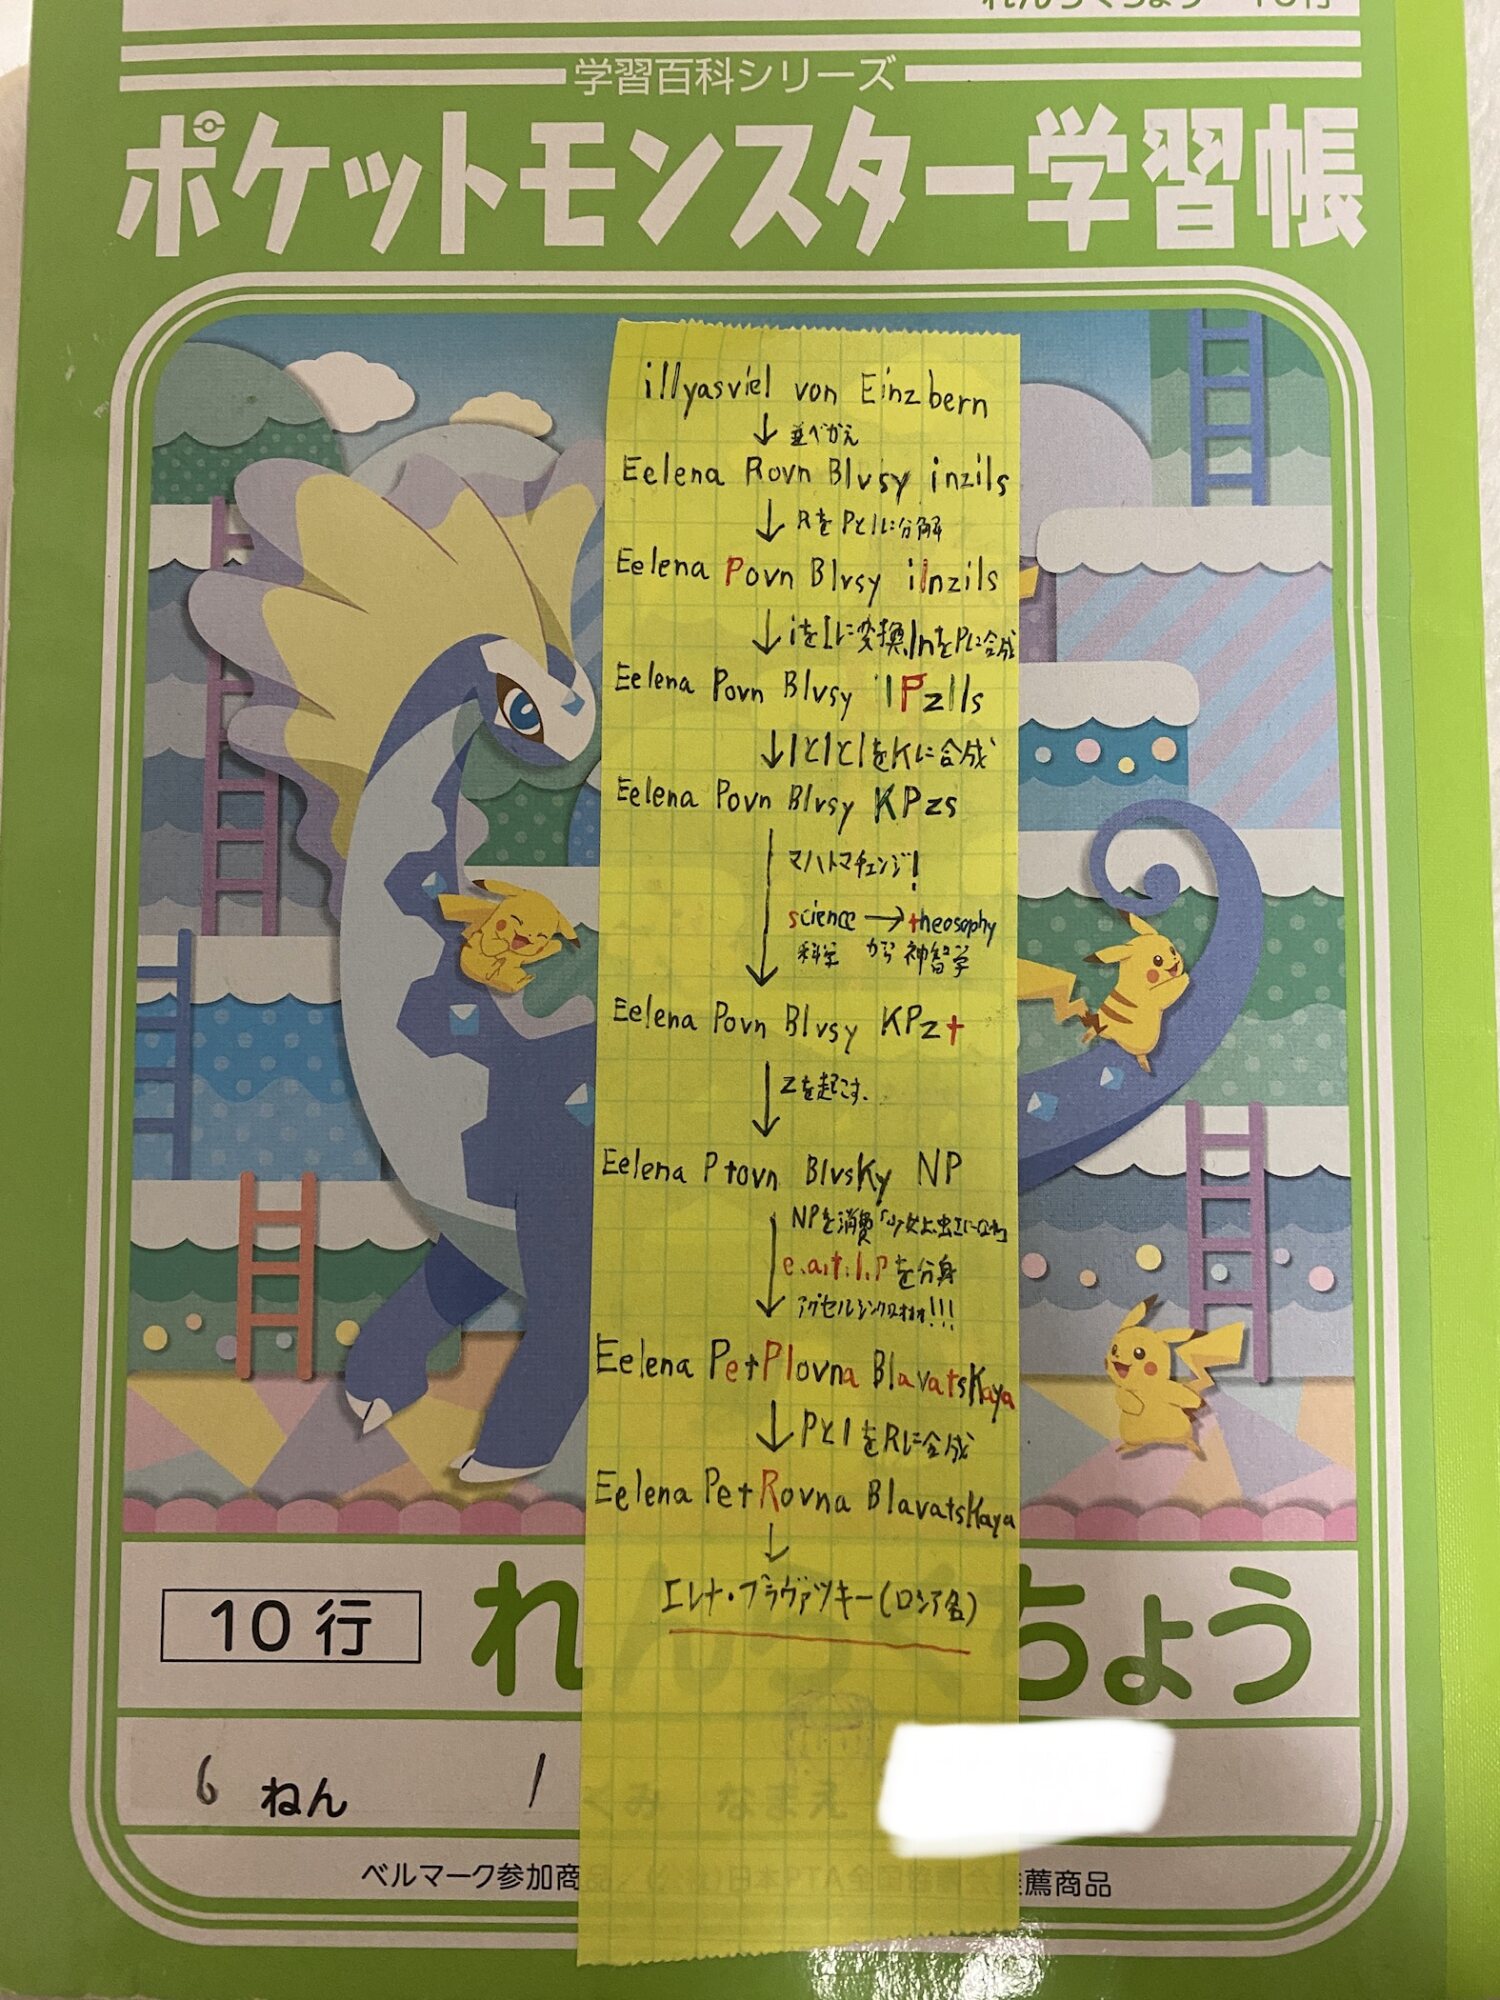 学習百科シリーズ
ポケットモンスター学習帳
illyasviel von Einzbern
↓ 並べかえ
Eelena Rovn Blvsy inzils
↓ RをPとlに分解
Eelena Povn Blvsy ilnzils
↓ iをIに変換、lnをPに合成
Eelena Povn Blvsy lPzlls
↓ lとlとlをKに合成
Eelena Povn Blvsy KPzs
マハトマチェンジ!
science → theosophy
科学 から 神智学
Eelena Povn Blvsy KPzt
↓ zを起こす.
Eelena Ptovn BlvsKy NP
NPを消費
e.a.t.l.Pを分身
アクセルシンクロオオオ!!!
Eelena PetPlovna BlavatsKaya
↓ Pとlを Rに合成
Eelena PetRovna BlavatsKaya
↓
エレナ・ブラヴァツキー(ロシア名)
10行
れんらくちょう
6 ねん 1 くみ なまえ
ベルマーク参加商品/(公社)日本PTA全国協議会推薦商品